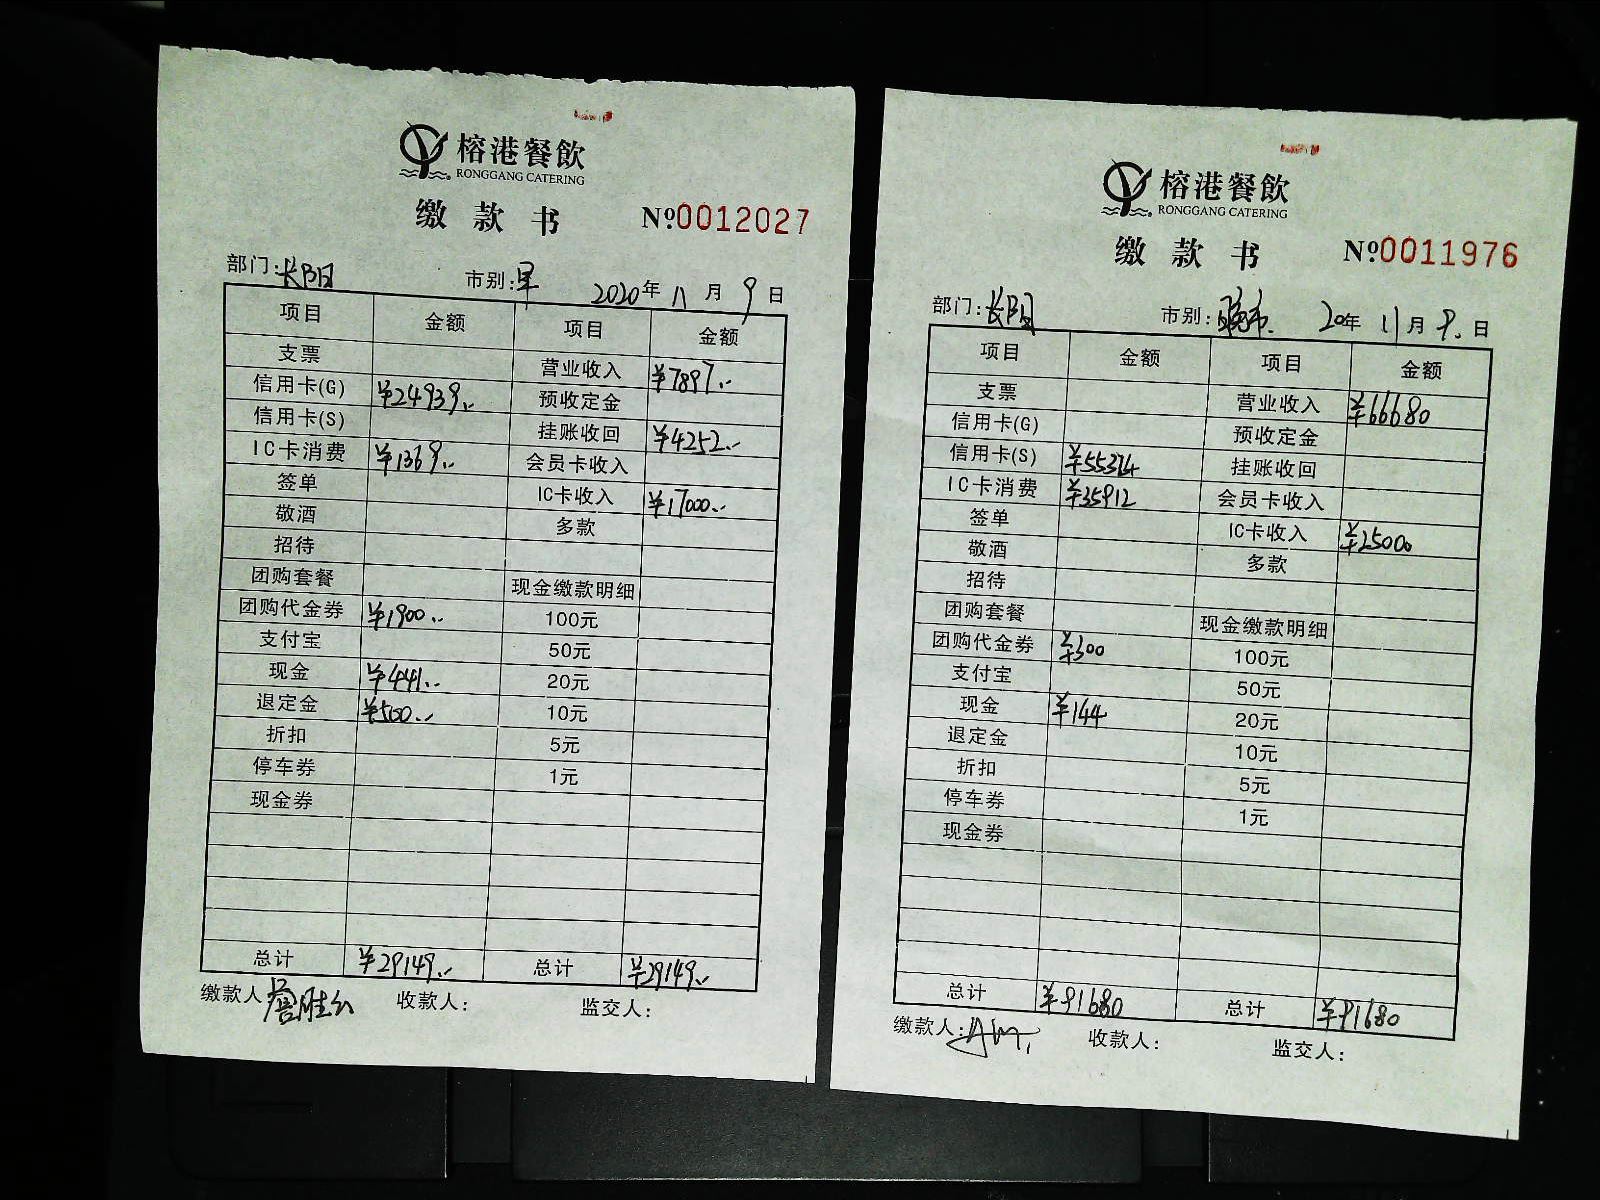 榕港餐飲
RONGGANG CATERING
缴款书 №0012027
部门:长阳 市别:早 2020年11月9日
项目 金额 项目 金额
支票 营业收入 ¥7897.-
信用卡(G) ¥24939.- 预收定金
信用卡(S) 挂账收回 ¥4252.-
IC卡消费 ¥1369.- 会员卡收入
签单 IC卡收入 ¥17000.-
敬酒 多款
招待
团购套餐 现金缴款明细
团购代金券 ¥1900.- 100元
支付宝 50元
现金 ¥441.- 20元
退定金 ¥500.- 10元
折扣 5元
停车券 1元
现金券
总计 ¥29149.- 总计 ¥29149.-
缴款人: 收款人: 监交人:
榕港餐飲
RONGGANG CATERING
缴款书 №0011976
部门:长阳 市别:晚市. 20年11月9.日
项目 金额 项目 金额
支票 营业收入 ¥66680
信用卡(G) 预收定金
信用卡(S) ¥55324 挂账收回
IC卡消费 ¥35912 会员卡收入
签单 IC卡收入 ¥25000
敬酒 多款
招待
团购套餐 现金缴款明细
团购代金券 ¥300 100元
支付宝 50元
现金 ¥144 20元
退定金 10元
折扣 5元
停车券 1元
现金券
总计 ¥91680 总计 ¥91680
缴款人: 收款人: 监交人: